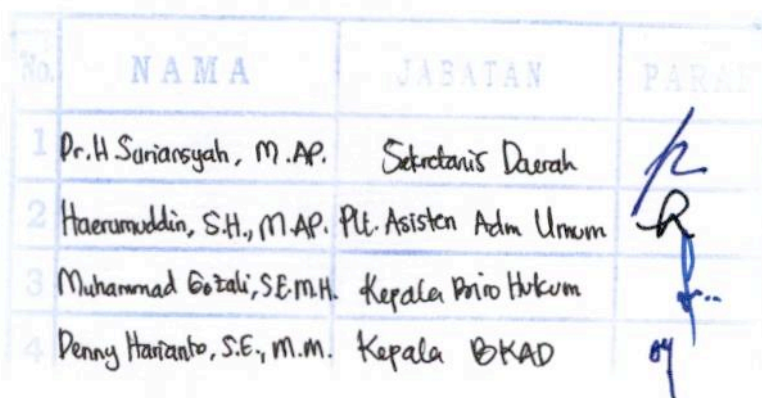 No. NAMA JABATAN PARAF
1 Dr. H Suriansyah, M.AP. Sekretaris Daerah
2 Haerumuddin, S.H., M.AP. Plt. Asisten Adm Umum
3 Muhammad Gozali, S.E.M.H. Kepala Biro Hukum
4 Denny Harianto, S.E., M.M. Kepala BKAD